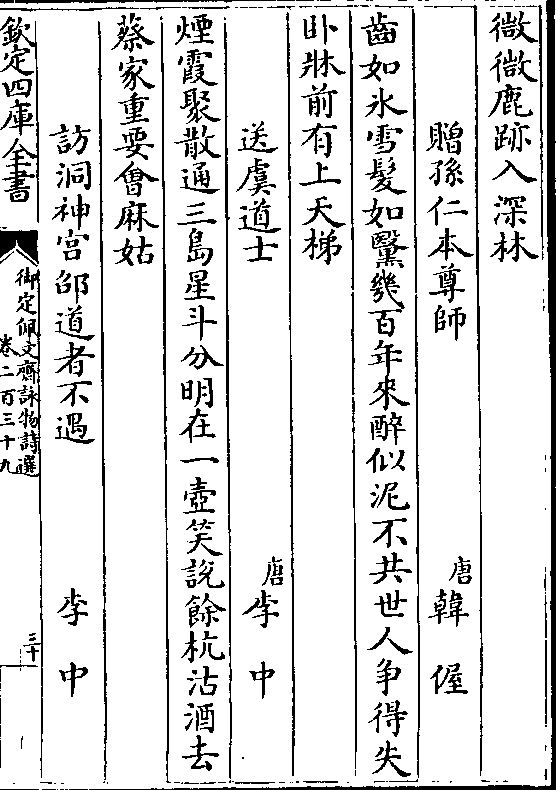 微微鹿跡入深林
贈孫仁本尊師
唐韓偓
齒如氷雪髮如黳幾百年來醉似泥不共世人爭得失
卧牀前有上天梯
送虞道士
唐李中
煙霞聚散通三島星斗分明在一壺笑說餘杭沽酒去
蔡家重要會麻姑
訪洞神宫邵道者不遇
李中
欽定四庫全書
御定佩文齋詠物詩選
卷二百三十九
三十